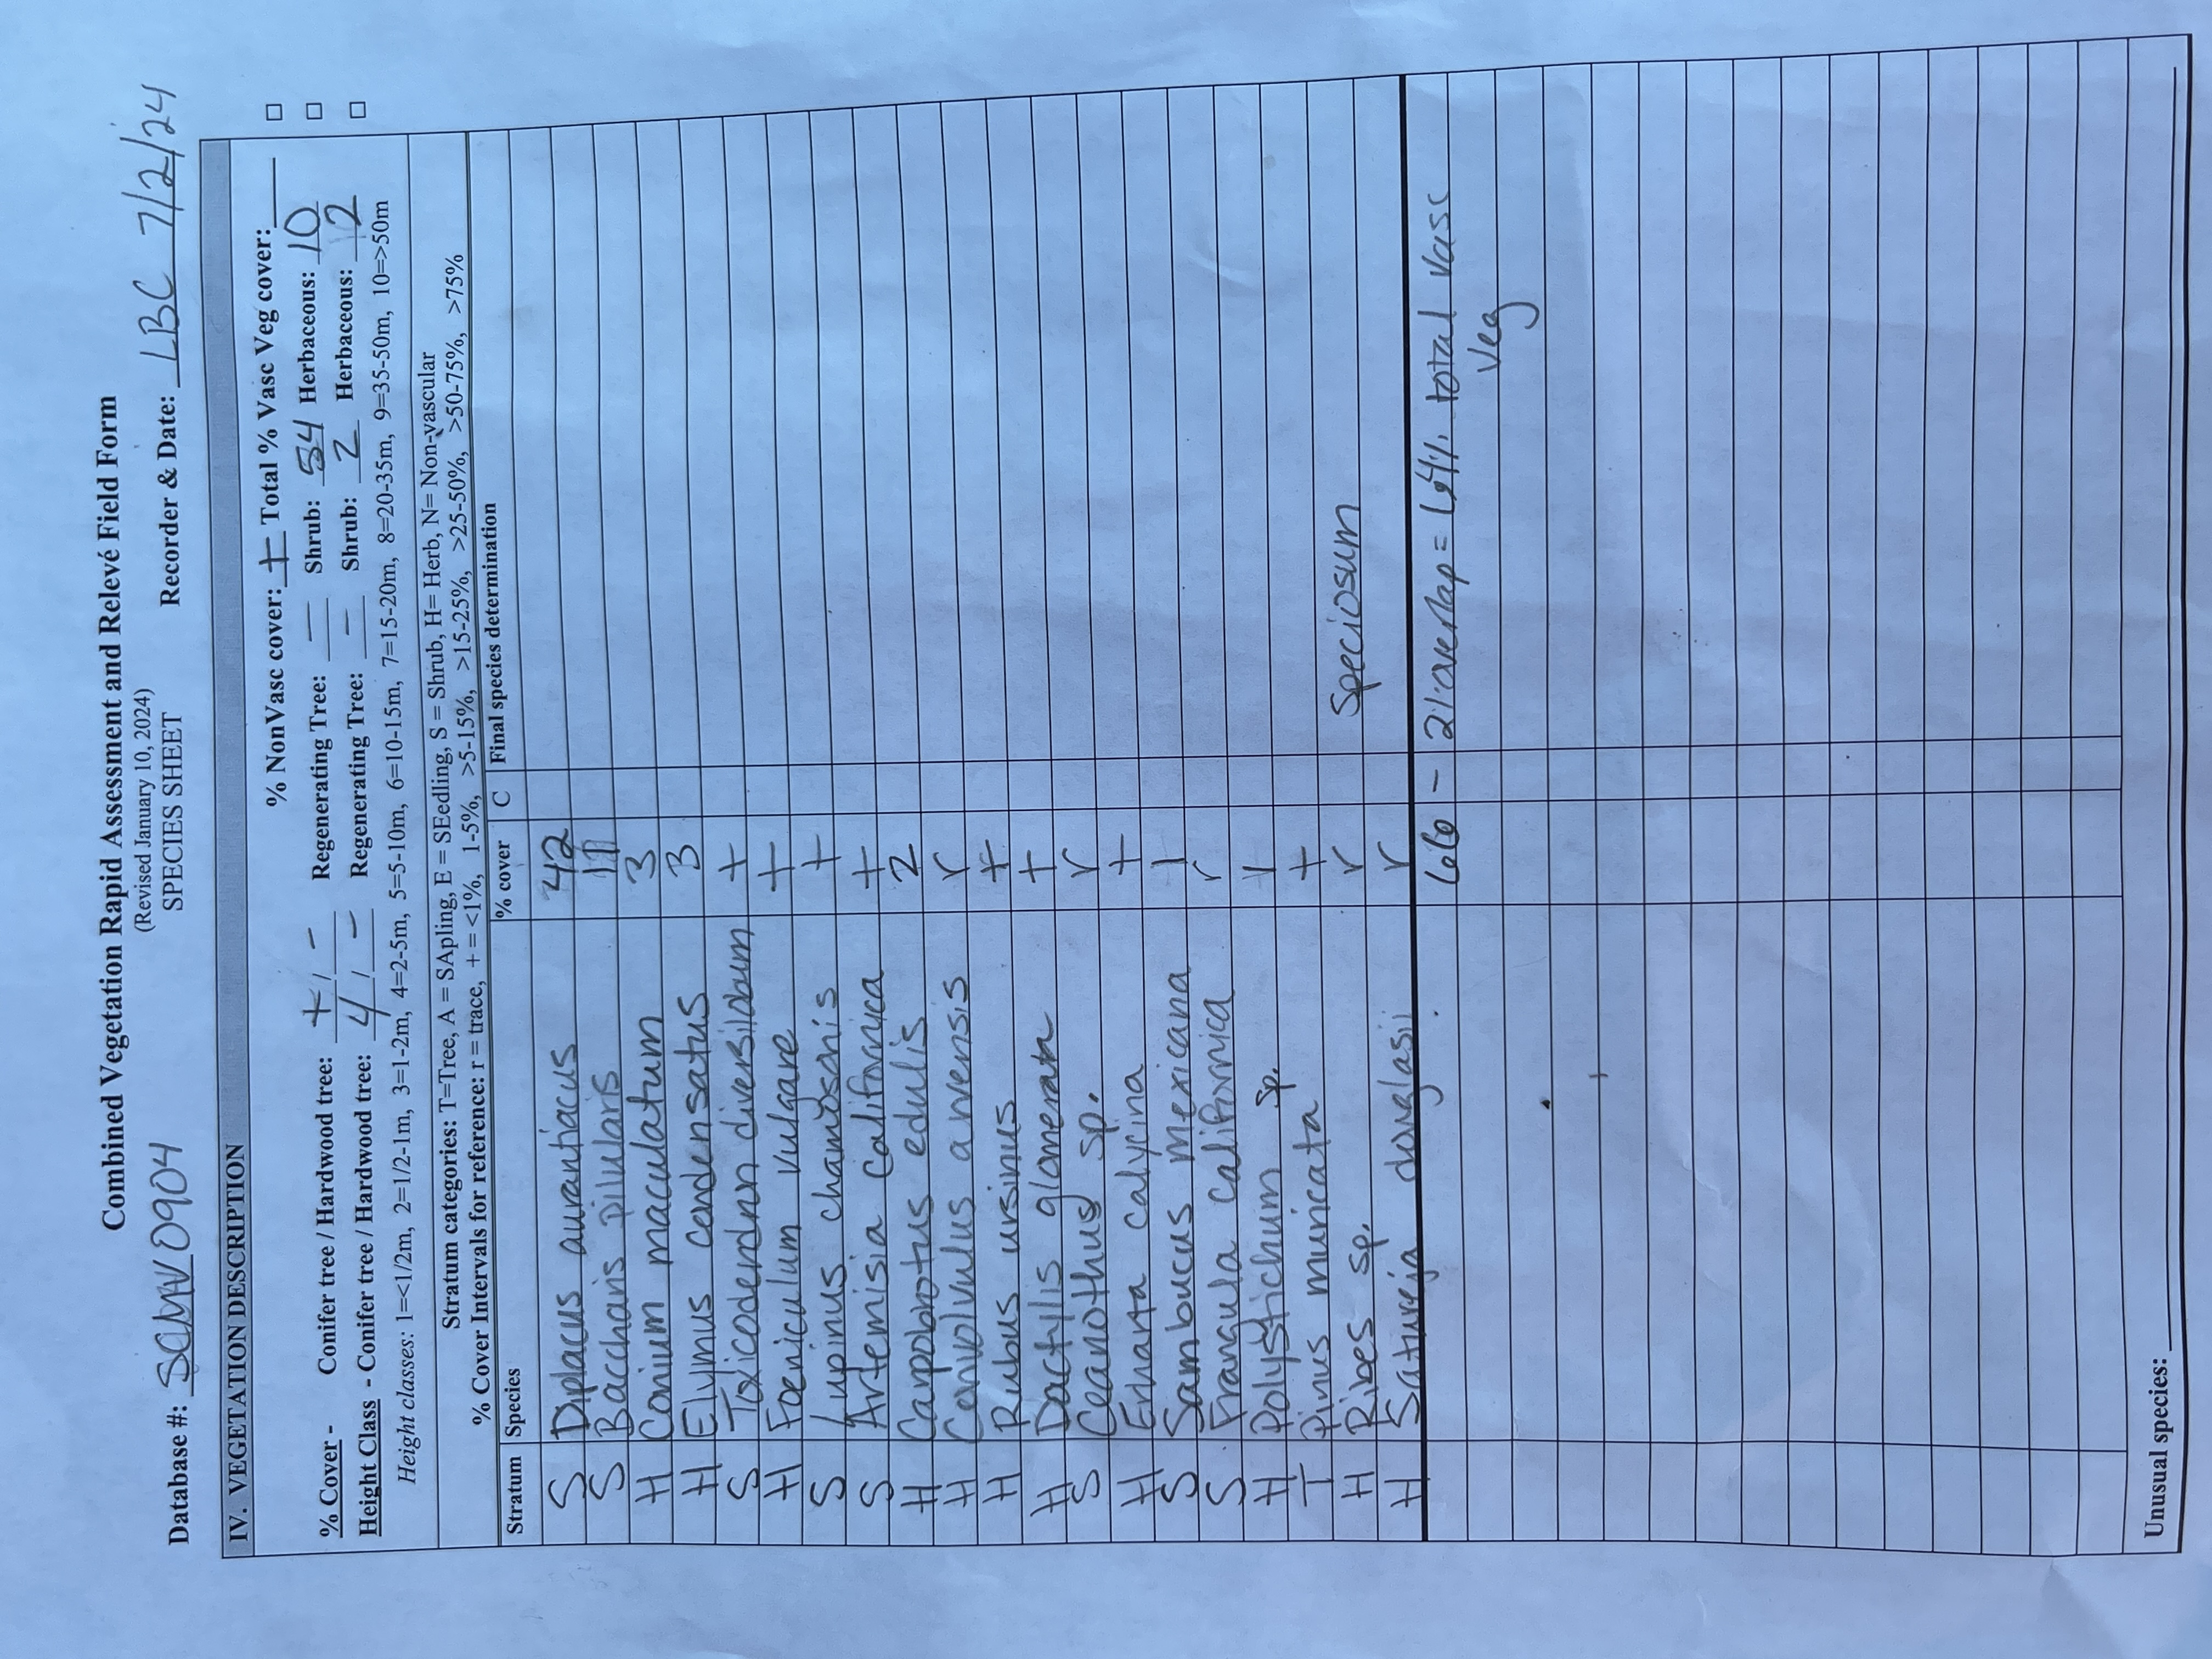 Combined Vegetation Rapid Assessment and Relevé Field Form
(Revised January 10, 2024)
SPECIES SHEET
Database #: Recorder & Date: LBC 7/2/24
IV. VEGETATION DESCRIPTION
% NonVasc cover: + Total % Vasc Veg cover: □
% Cover - Conifer tree / Hardwood tree: + / - Regenerating Tree: — Shrub: 54 Herbaceous: 10 □
Height Class - Conifer tree / Hardwood tree: 4 / - Regenerating Tree: — Shrub: 2 Herbaceous: 2 □
Height classes: 1=<1/2m, 2=1/2-1m, 3=1-2m, 4=2-5m, 5=5-10m, 6=10-15m, 7=15-20m, 8=20-35m, 9=35-50m, 10=>50m
Stratum categories: T=Tree, A = SApling, E = SEedling, S = Shrub, H= Herb, N= Non-vascular
% Cover Intervals for reference: r = trace, + = <1%, 1-5%, >5-15%, >15-25%, >25-50%, >50-75%, >75%
Stratum Species % cover C Final species determination
S Diplacus aurantiacus 42
S Baccharis pilularis 11
H Conium maculatum 3
H Elymus condensatus 3
S Toxicodendron diversilobum +
H Foeniculum vulgare +
S Lupinus chamissonis +
S Artemisia californica +
H Carpobrotus edulis 2
H Convolvulus arvensis r
H Rubus ursinus +
H Dactylis glomerata +
S Ceanothus sp. r
H Erharta calycina +
S Sambucus mexicana 1
S Frangula californica r
H Polystichum sp. +
T Pinus muricata +
H Ribes sp. r Speciosum
H Satureja douglasii r
66 - 2% overlap = 64% total vasc
Veg
Unusual species: